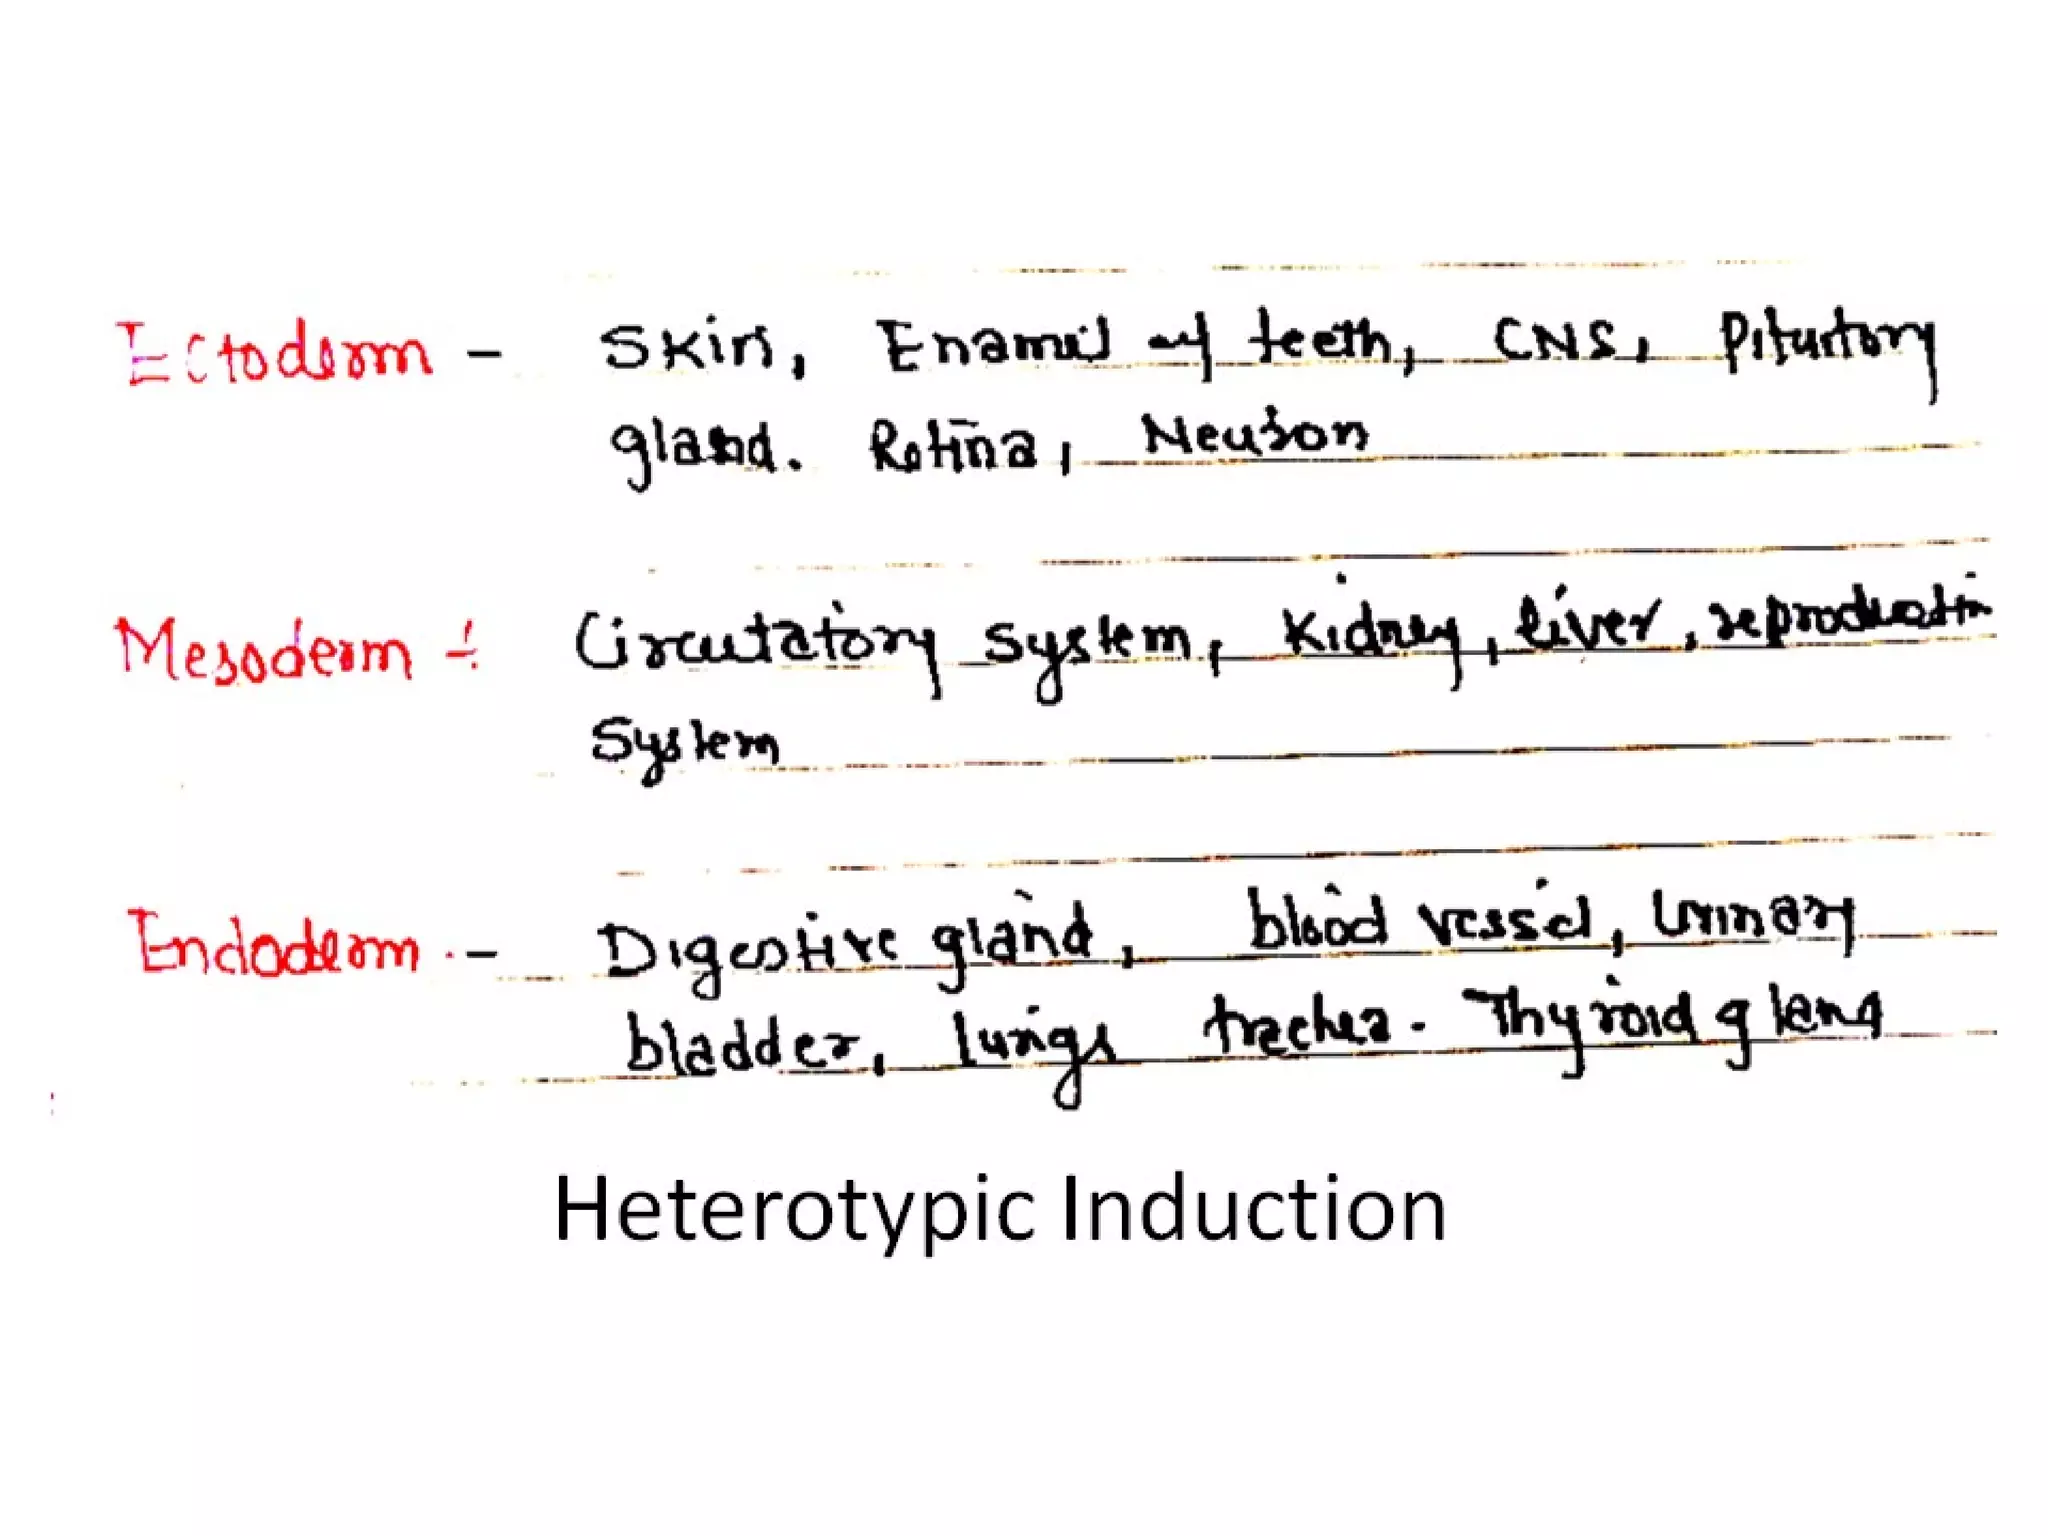 Ectoderm - Skin, Enamel of teeth, CNS, Pitutory
gland. Retina, Neuron
Mesoderm :- Circutatory system, Kidney, liver, reproduction
System
Endoderm :- Digestive gland, blood vessel, Urinary
bladder, lungs trachea. Thyroid gland
Heterotypic Induction